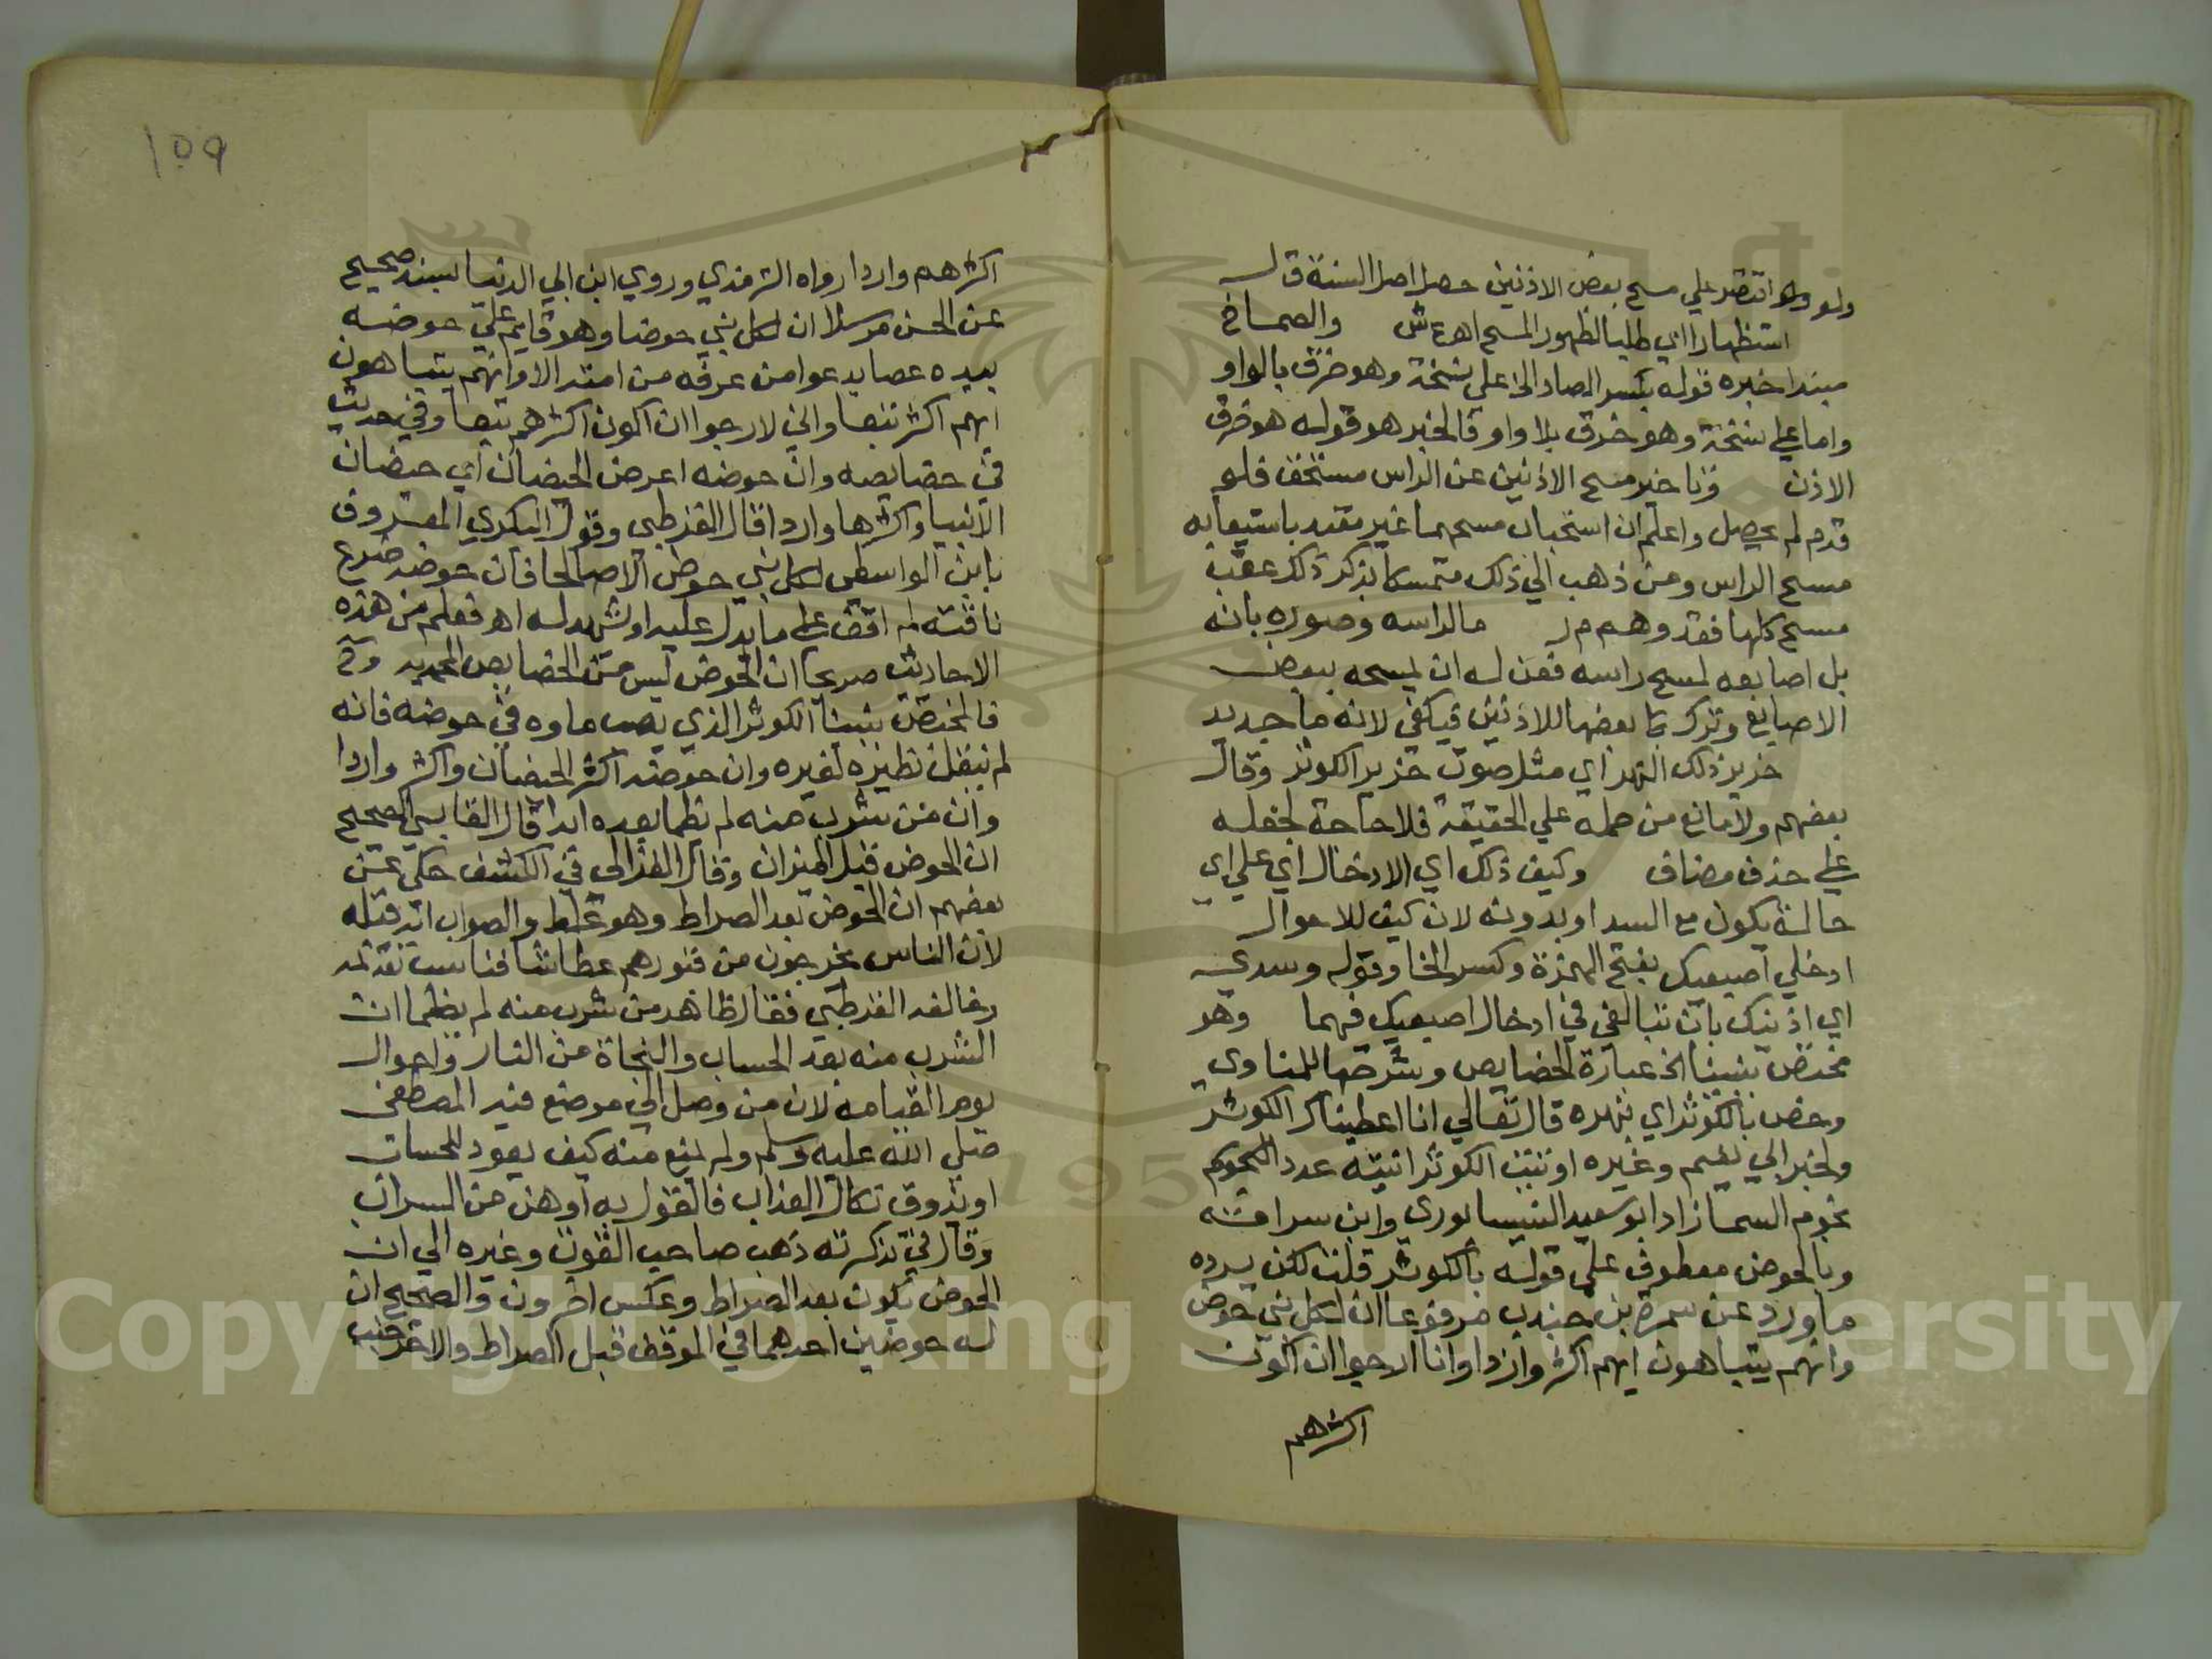 ولو اقتصر علي مسح بعض الاذنين حصل اصل السنة ق ل
استظهارا اي طلبا لظهور المسح اهـ ع ش والصماخ
مبتدا خبره قوله بكسر الصاد الخ علي نسخة وهو خرق بالواو
واما علي نسخة وهو خرق بلا واو فالخبر هو قوله هو خرق
الاذن وتاخير مسح الاذنين عن الراس مستحق فلو
قدم لم يحصل واعلم ان استحباب مسحهما غير مقيد باستيعابه
مسح الراس ومن ذهب الي ذلك متمسكا بذكر ذلك عقب
مسح كلها فقد وهم م ر ما لراسه وصوره بانه
بل اصابعه لمسح راسه فعن له ان يمسحه ببعض
الاصابع وترك ما بعضها للاذنين فيكفي لانه ما جديد
خرير ذلك النهر اي مثل صوت خرير الكوثر وقال
بعضهم ولا مانع من حمله علي الحقيقة فلا حاجة لجعله
علي حذف مضاف وكيف ذلك اي الادخال اي علي اي
حالة يكون مع السد او بدونه لان كيف للاحوال
ادخلي اصبعيك بفتح الهمزة وكسر الخا وقوله وسدي
اي اذنيك بان تبالغي في ادخال اصبعيك فيهما وهو
مختص بنبينا الخ عبارة الخصايص وشرحها للمناوي
وخص بالكوثر اي بنهره قال تعالي انا اعطيناك الكوثر
ولخبر ابي نعيم وغيره اوتيت الكوثر انيته عدد النجوم
نجوم السما زاد ابو سعيد النيسابوري وابن سراقة
وبالحوض معطوف علي قوله بالكوثر قلت لكن يرده
ما ورد عن سمرة بن جندب مرفوعا ان لكل نبي حوض
وانهم يتباهون ايهم اكثر واردا وانا ارجوا ان اكون
اكثرهم
١٥٩
اكثرهم واردا رواه الترمذي وروي ابن ابي الدنيا بسند صحيح
عن الحسن مرسلا ان لكل نبي حوضا وهو قايم علي حوضه
بيده عصا يدعوا من عرفه من امته الا وانهم يتباهون
ايهم اكثر تبعا واني لارجوا ان اكون اكثرهم تبعا وفي حديث
في خصايصه وان حوضه اعرض الحيضان اي حيضان
الانبيا واكثرها واردا قال القرطبي وقول البكري المعروف
بابن الواسطي لكل نبي حوض الا صالحا فان حوضه ضرع
ناقته لم اقف علي ما يدل عليه او يشهد له اهـ فعلم من هذه
الاحاديث صريحا ان الحوض ليس من الخصايص المحمدية وح
فالمختص بنبينا الكوثر الذي يصب ماوه في حوضه فانه
لم ينقل نظيره لغيره وان حوضه اكثر الحيضان واكثر واردا
وان من شرب منه لم يظما بعده ابدا قال القابسي الصحيح
ان الحوض قبل الميزان وقال الغزالي في الكشف حكي عن
بعضهم ان الحوض بعد الصراط وهو غلط والصواب انه قبله
لان الناس يخرجون من قبورهم عطاشا فناسب تقدمه
وخالفه القرطبي فقال ظاهر من شرب منه لم يظما ان
الشرب منه بعد الحساب والنجاة من النار واحوال
يوم القيامة لان من وصل الي موضع فيه المصطفي
صلي الله عليه وسلم ولم يمنع منه كيف يعود للحساب
او يذوق نكال العذاب فالقول به اوهن من السراب
وقال في تذكرته ذهب صاحب القوت وغيره الي ان
الحوض يكون بعد الصراط وعكس اخرون والصحيح ان
له حوضين احدهما في الموقف قبل الصراط والاخر
Copyright © King Saud University
1957